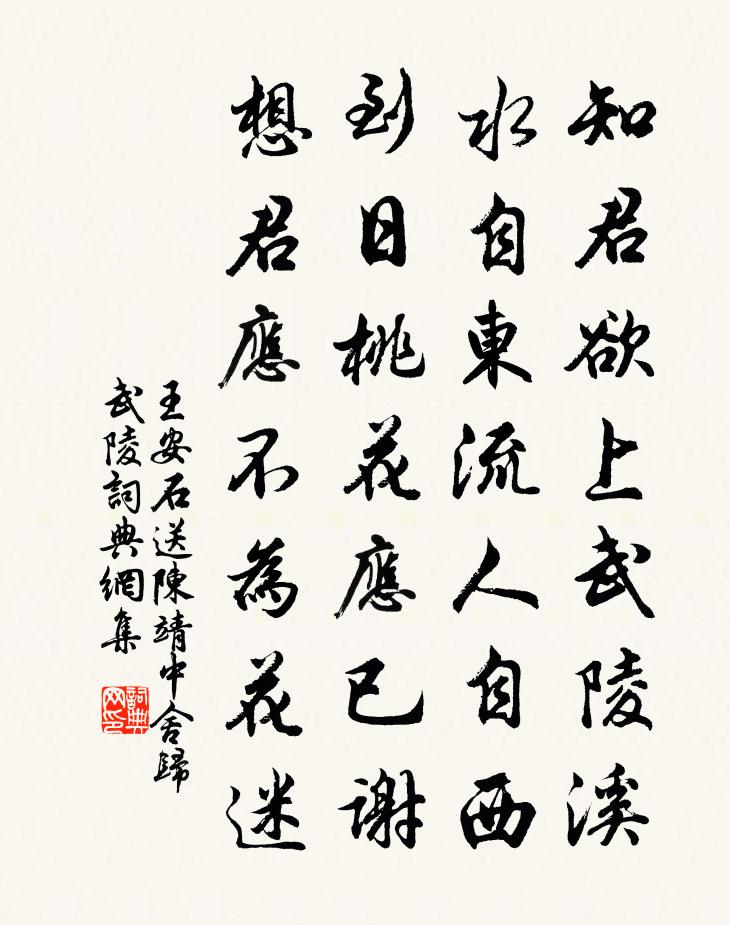 知君欲上武陵溪
水自東流人自西
到日桃花應已謝
想君應不為花迷
王安石送陳靖中舍歸
武陵詞典網集
詞典
网印